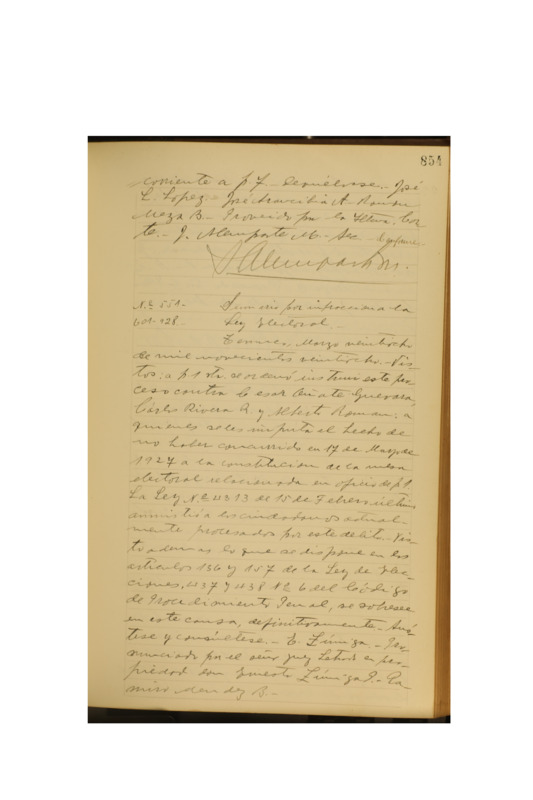 854
corriente a f 7. Devuélvase. José
L. Lopez. José Arancibia A. Roman
Meza B. Proveido por la Iltma. Cor
te. J. Alemparte M. Sec
J Alemparte M.
N.º 551. Sumario por infraccion a la
601-928. Ley Electoral.
Temuco, Marzo veintiocho
de mil novecientos veintiocho. Vis-
tos: a f 1 vta. se ordenó instruir este pro
ceso contra Cesar Oñate Guevara,
Cárlos Rivera R. y Alberto Roman; a
quienes se les imputa el hecho de
no haber concurrido en 17 de Marzo de
1927 a la constitucion de la mesa
electoral relacionada en oficio de f. 1.
La Ley N.º 4313 de 15 de Febrero último
amnistía los ciudadanos actual-
mente procesados por este delito. Vis-
to ademas lo que se dispone en los
artículos 156 y 157 de la Ley de Elec-
ciones, 437 y 438 N.º 6 del Código
de Procedimiento Penal, se sobresee
en esta causa, definitivamente. Anó
tese y consúltese. E. Zúñiga. Pro-
nunciado por el señor Juez Letrado en pro-
piedad don Ernesto Zúñiga P. Ra-
miro Mendez B.